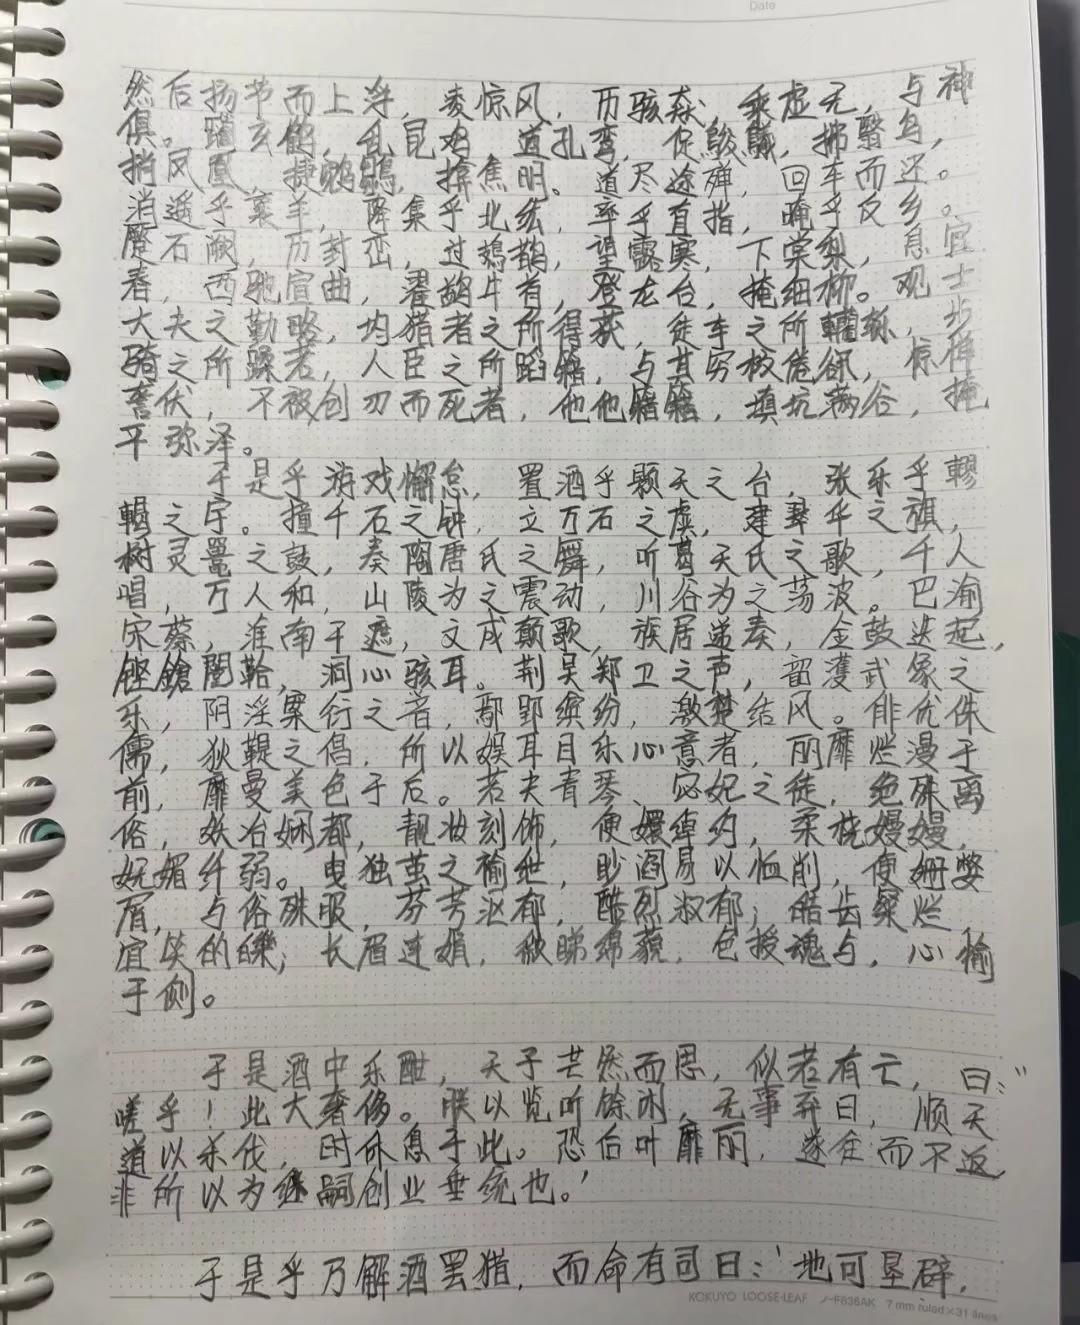 Date
然后扬节而上浮，凌惊风，历骇猋，乘虚无，与神
俱。躏玄鹤，乱昆鸡，遒孔鸾，促鵔鸃，拂翳鸟，
捎凤凰，捷鹓鶵，揜焦明。道尽途殚，回车而还。
消遥乎襄羊，降集乎北纮，率乎直指，晻乎反乡。
蹷石阙，历封峦，过鳷鹊，望露寒，下棠梨，息宜
春，西驰宣曲，濯鹢牛首，登龙台，掩细柳。观士
大夫之勤略，均猎者之所得获，徒车之所轥轹，步
骑之所蹂若，人臣之所蹈籍，与其穷极倦𠛱，惊惮
詟伏，不被创刃而死者，他他籍籍，填坑满谷，掩
平弥泽。
于是乎游戏懈怠，置酒乎颢天之台，张乐乎轇
轕之宇。撞千石之钟，立万石之虡，建翠华之旗，
树灵鼍之鼓，奏陶唐氏之舞，听葛天氏之歌，千人
唱，万人和，山陵为之震动，川谷为之荡波。巴渝
宋蔡，淮南干遮，文成颠歌，族居递奏，金鼓迭起，
铿鎗闛鞈，洞心骇耳。荆吴郑卫之声，韶濩武象之
乐，阴淫案衍之音，鄢郢缤纷，激楚结风。俳优侏
儒，狄鞮之倡，所以娱耳目乐心意者，丽靡烂漫于
前，靡曼美色于后。若夫青琴、宓妃之徒，绝殊离
俗，妖冶娴都，靓妆刻饰，便嬛绰约，柔桡嫚嫚，
妩媚纤弱。曳独茧之褕绁，眇阎易以恤削，便姗嫳
屑，与俗殊服，芬芳沤郁，酷烈淑郁；皓齿粲烂
宜笑的皪；长眉连娟，微睇绵藐，色授魂与，心愉
于侧。
于是酒中乐酣，天子芒然而思，似若有亡，曰：“
嗟乎！此大奢侈。朕以览听馀闲，无事弃日，顺天
道以杀伐，时休息于此。恐后叶靡丽，遂往而不返
非所以为继嗣创业垂统也。’
于是乎乃解酒罢猎，而命有司曰：‘地可垦辟，
KOKUYO LOOSE-LEAF ノ-F836AK 7 mm ruled×31 lines